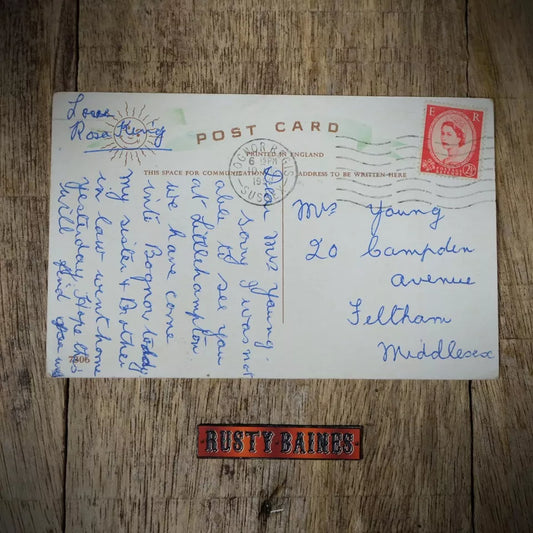 POST CARD
PRINTED IN ENGLAND
THIS SPACE FOR COMMUNICATION
ADDRESS TO BE WRITTEN HERE
E R
2½
BOGNOR REGIS
SUSSEX
Dear Mrs Young.
sorry I was not
able to see you
at Littlehampton
we have come
into Bognor today
my sister & Brother
in law went home
yesterday Hope this
will find you
Love
Rose King
Mrs Young
20 Campden
avenue
Feltham
Middlesex
7806
RUSTY BAINES